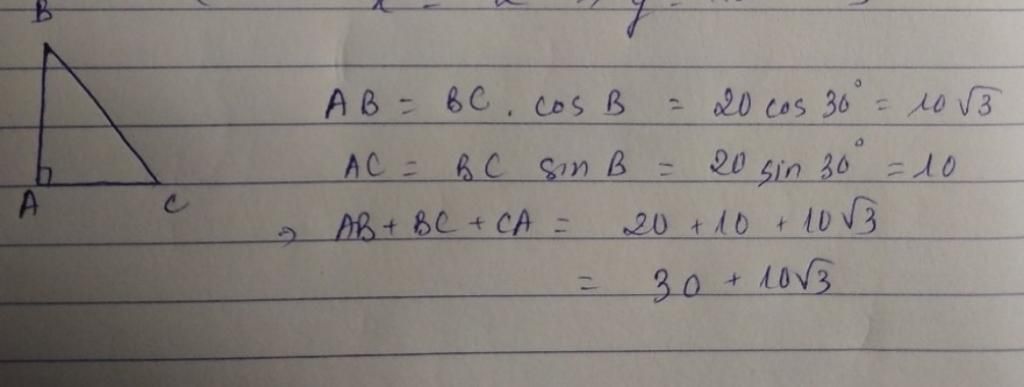 B
AB = BC . cos B = 20 cos 30° = 10√3
AC = BC sin B = 20 sin 30° = 10
A C
⇒ AB + BC + CA = 20 + 10 + 10√3
= 30 + 10√3